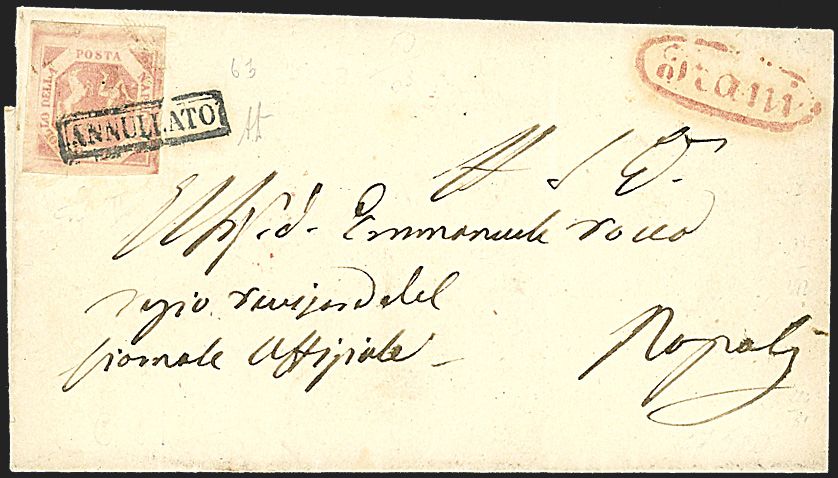 POSTA
BOLLO DELLA
ANNULLATO
63
Trani
A S. E.
Emmanuele Rocco
regio revisore del
Giornale Uffiziale
Napoli